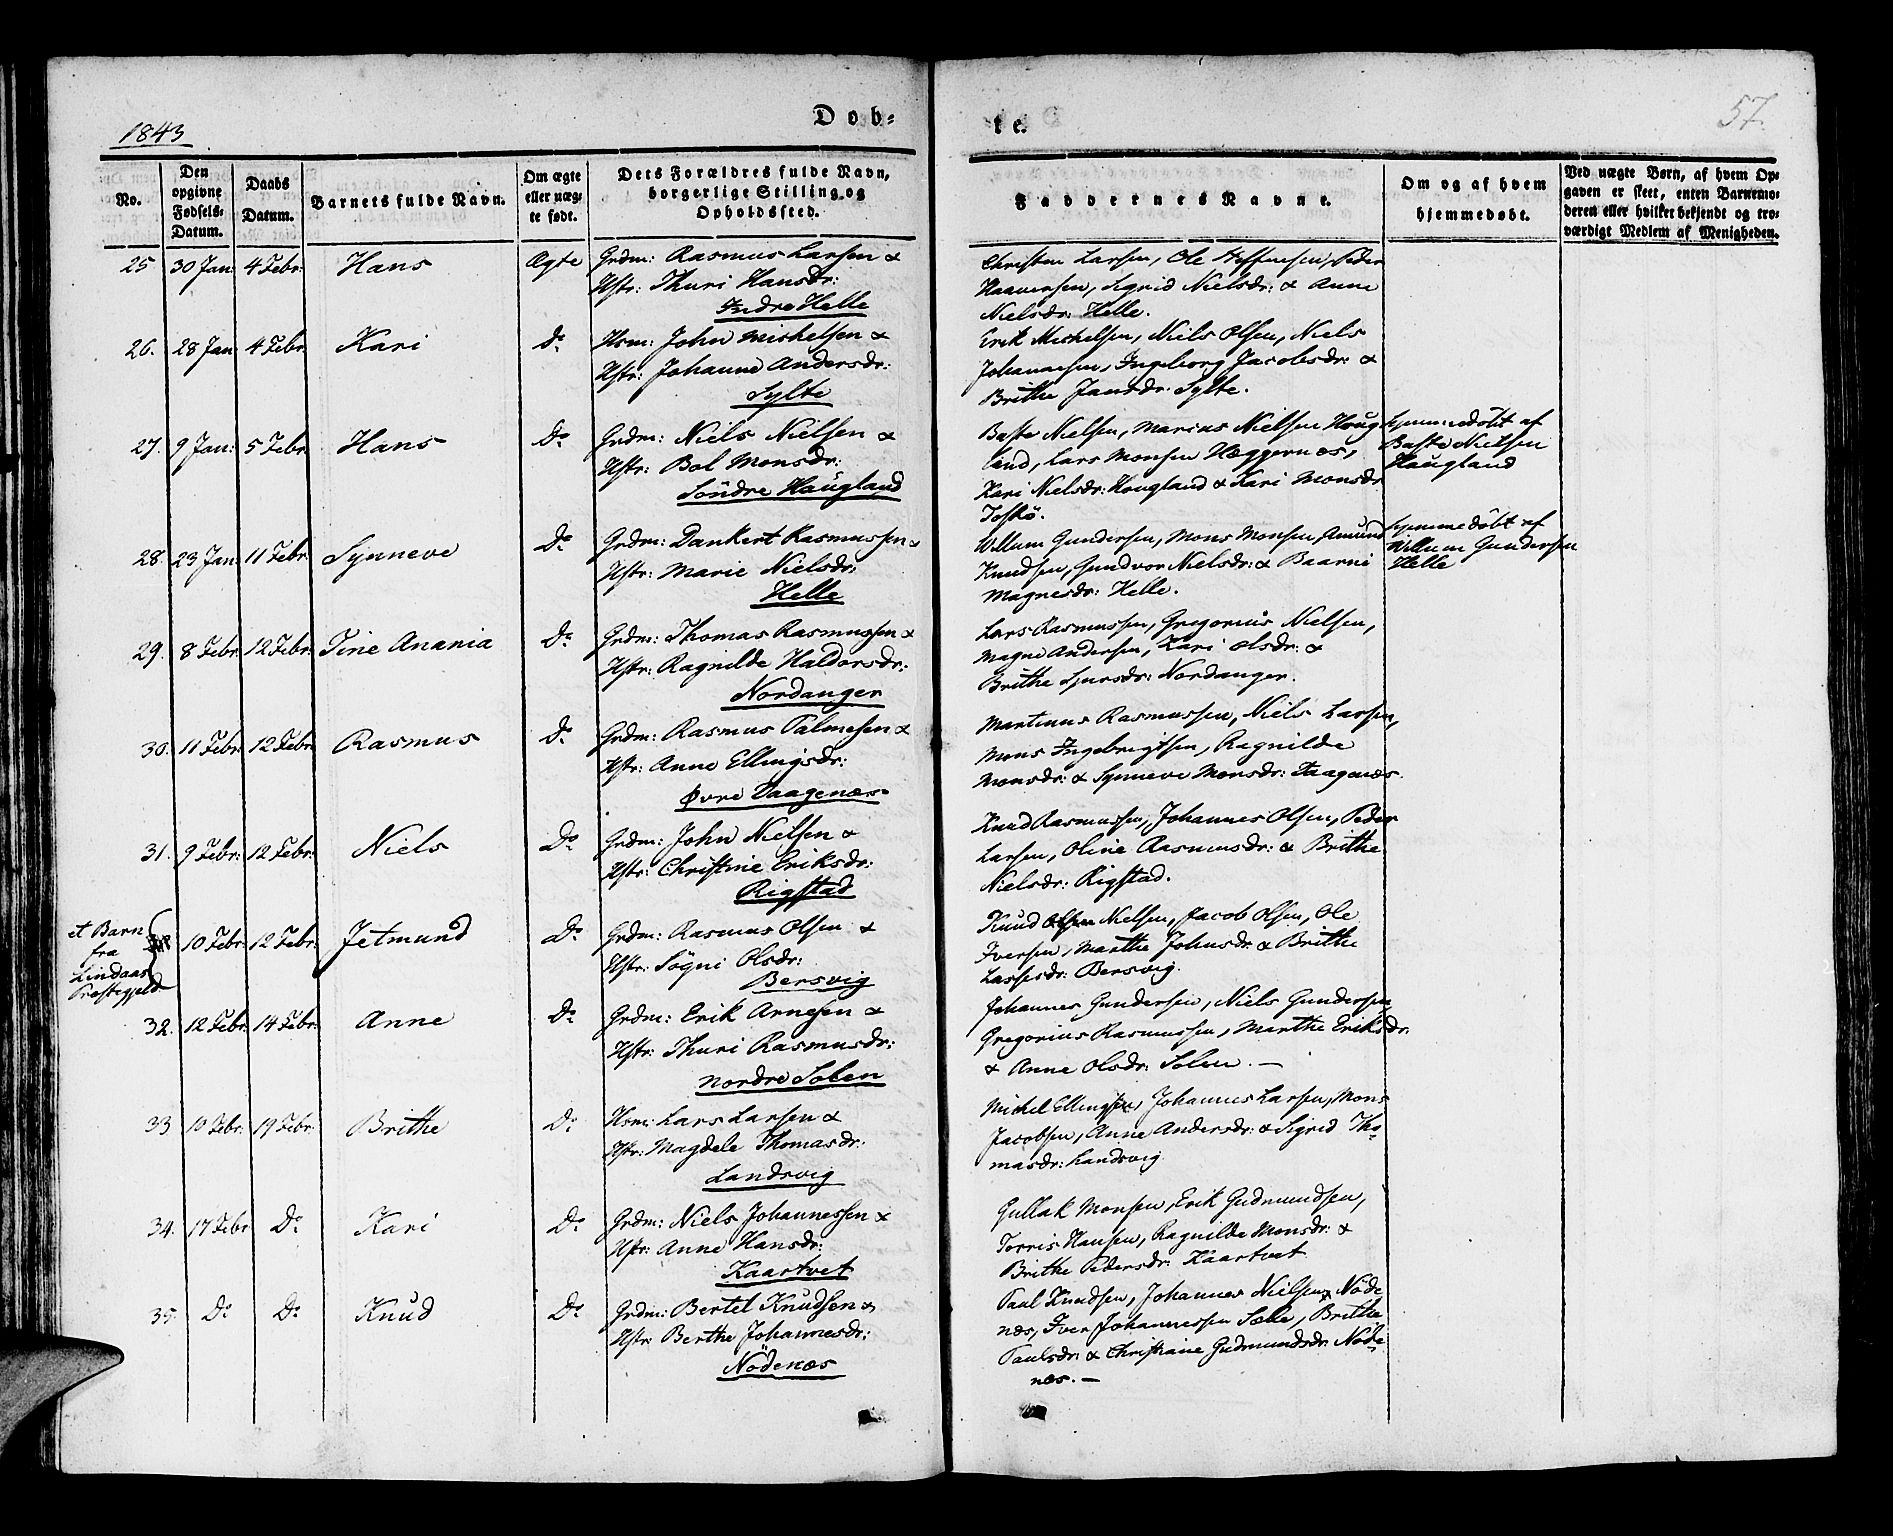 1843
Dob-
te.
57.
No.
Den opgivne Fødsels-Datum.
Daabs Datum.
Barnets fulde Navn.
Om ægte eller uæg-te født.
Dets Forældres fulde Navn, borgerlige Stilling og Opholdssted.
Faddernes Navne.
Om og af hvem hjemmedøbt.
Ved uægte Børn, af hvem Op-gaven er skeet, enten Barnemo-deren eller hvilket bekjendt og tro-værdigt Medlem af Menigheden.
25 30 Jan: 4 Febr: Hans Ægte Grdm: Rasmus Larsen &
Hstr: Thuri Hansdr:
Indre Helle
Christen Larsen, Ole Steffensen, Peder
Haaversen, Sigrid Nielsdr: & Anne
Nielsdr: Helle.
26. 28 Jan 4 Febr Kari Do Hsm: John Mishelsen &
Hstr: Johanne Andersdr:
Sylte
Erik Mishelsen, Niels Olsen, Niels
Johannesen, Ingeborg Jacobsdr: &
Brithe Jansdr: Sylte.
27. 9 Jan: 5 Febr Hans Do Grdm: Niels Nielsen &
Hstr: Bol Monsdr:
Söndre Haugland
Baste Nielsen, Marius Nielsen Haug
land, Lars Monsen Hæggernæs,
Kari Nielsdr: Haugland & Kari Monsdr
Toskö.
hjemmedöbt af
Baste Nielsen
Haugland
28. 23 Jan 11 Febr Synneve Do Grdm: Dankert Rasmussen &
Hstr: Marie Nielsdr:
Helle
Willum Gundersen, Mons Monsen, Amund
Knudsen, Gundvor Nielsdr: & Baarni
Magnesdr: Helle.
hjemmedöbt af
Willum Gundersen
Helle
29. 8 Febr 12 Febr: Tine Anania Do Grdm: Thomas Rasmussen &
Hstr: Ragnilde Haldorsdr:
Nordanger
Lars Rasmussen, Gregorius Nielsen,
Magne Andersen, Kari Olsdr: &
Brithe Sjursdr: Nordanger.
30. 11 Febr: 12 Febr: Rasmus Do Grdm: Rasmus Palmesen &
Hstr: Anne Ellingsdr:
Øvre Daagenæs
Martinus Rasmussen, Niels Larsen,
Mons Ingebrigtsen, Ragnilde
Monsdr: & Synneve Monsdr: Daagenæs.
31. 9 Febr: 12 Febr: Niels Do Grdm: John Nielsen &
Hstr: Christine Eriksdr:
Rigstad
Knud Rasmussen, Johannes Olsen, Peder
Larsen, Oline Rasmusdr: & Brithe
Nielsdr: Rigstad.
et Barn
fra
Lindaas
Præstegjeld
10 Febr: 12 Febr: Jetmund Do Grdm: Rasmus Olsen &
Hstr: Sögni Olsdr:
Bersvig
Knud Olsen Nielsen, Jacob Olsen, Ole
Iversen, Marthe Johnsdr: & Brithe
Lassesdr: Bersvig.
32. 12 Febr: 14 Febr: Anne Do Grdm: Erik Arnesen &
Hstr: Thuri Rasmusdr:
nordre Solen
Johannes Gundersen, Niels Gundersen
Gregorius Rasmussen, Marthe Eriksdr:
& Anne Olsdr: Solen. —
33 10 Febr: 19 Febr: Brithe Do Hsm: Lars Larsen &
Hstr: Magdele Thomasdr:
Landsvig
Michel Ellingsen, Johannes Larsen, Mons
Jacobsen, Anne Andersdr: & Sigrid Tho-
masdr: Landsvig
34. 17 Febr Do Kari Do Grdm: Niels Johannessen &
Hstr: Anne Hansdr:
Kaartvet
Gullak Monsen, Erik Gudmundsen,
Torris Hansen, Ragnilde Monsdr: &
Brithe Pedersdr: Kaartvet
35. Do Do Knud Do Grdm: Bertel Knudsen &
Hstr: Berthe Johannesdr:
Nödenæs
Paul Knudsen, Johannes Nielsen Nöde
næs, Iver Johannessen Sæbe, Brithe
Paulsdr: & Christiane Gudmundsdr: Nöde-
næs. —